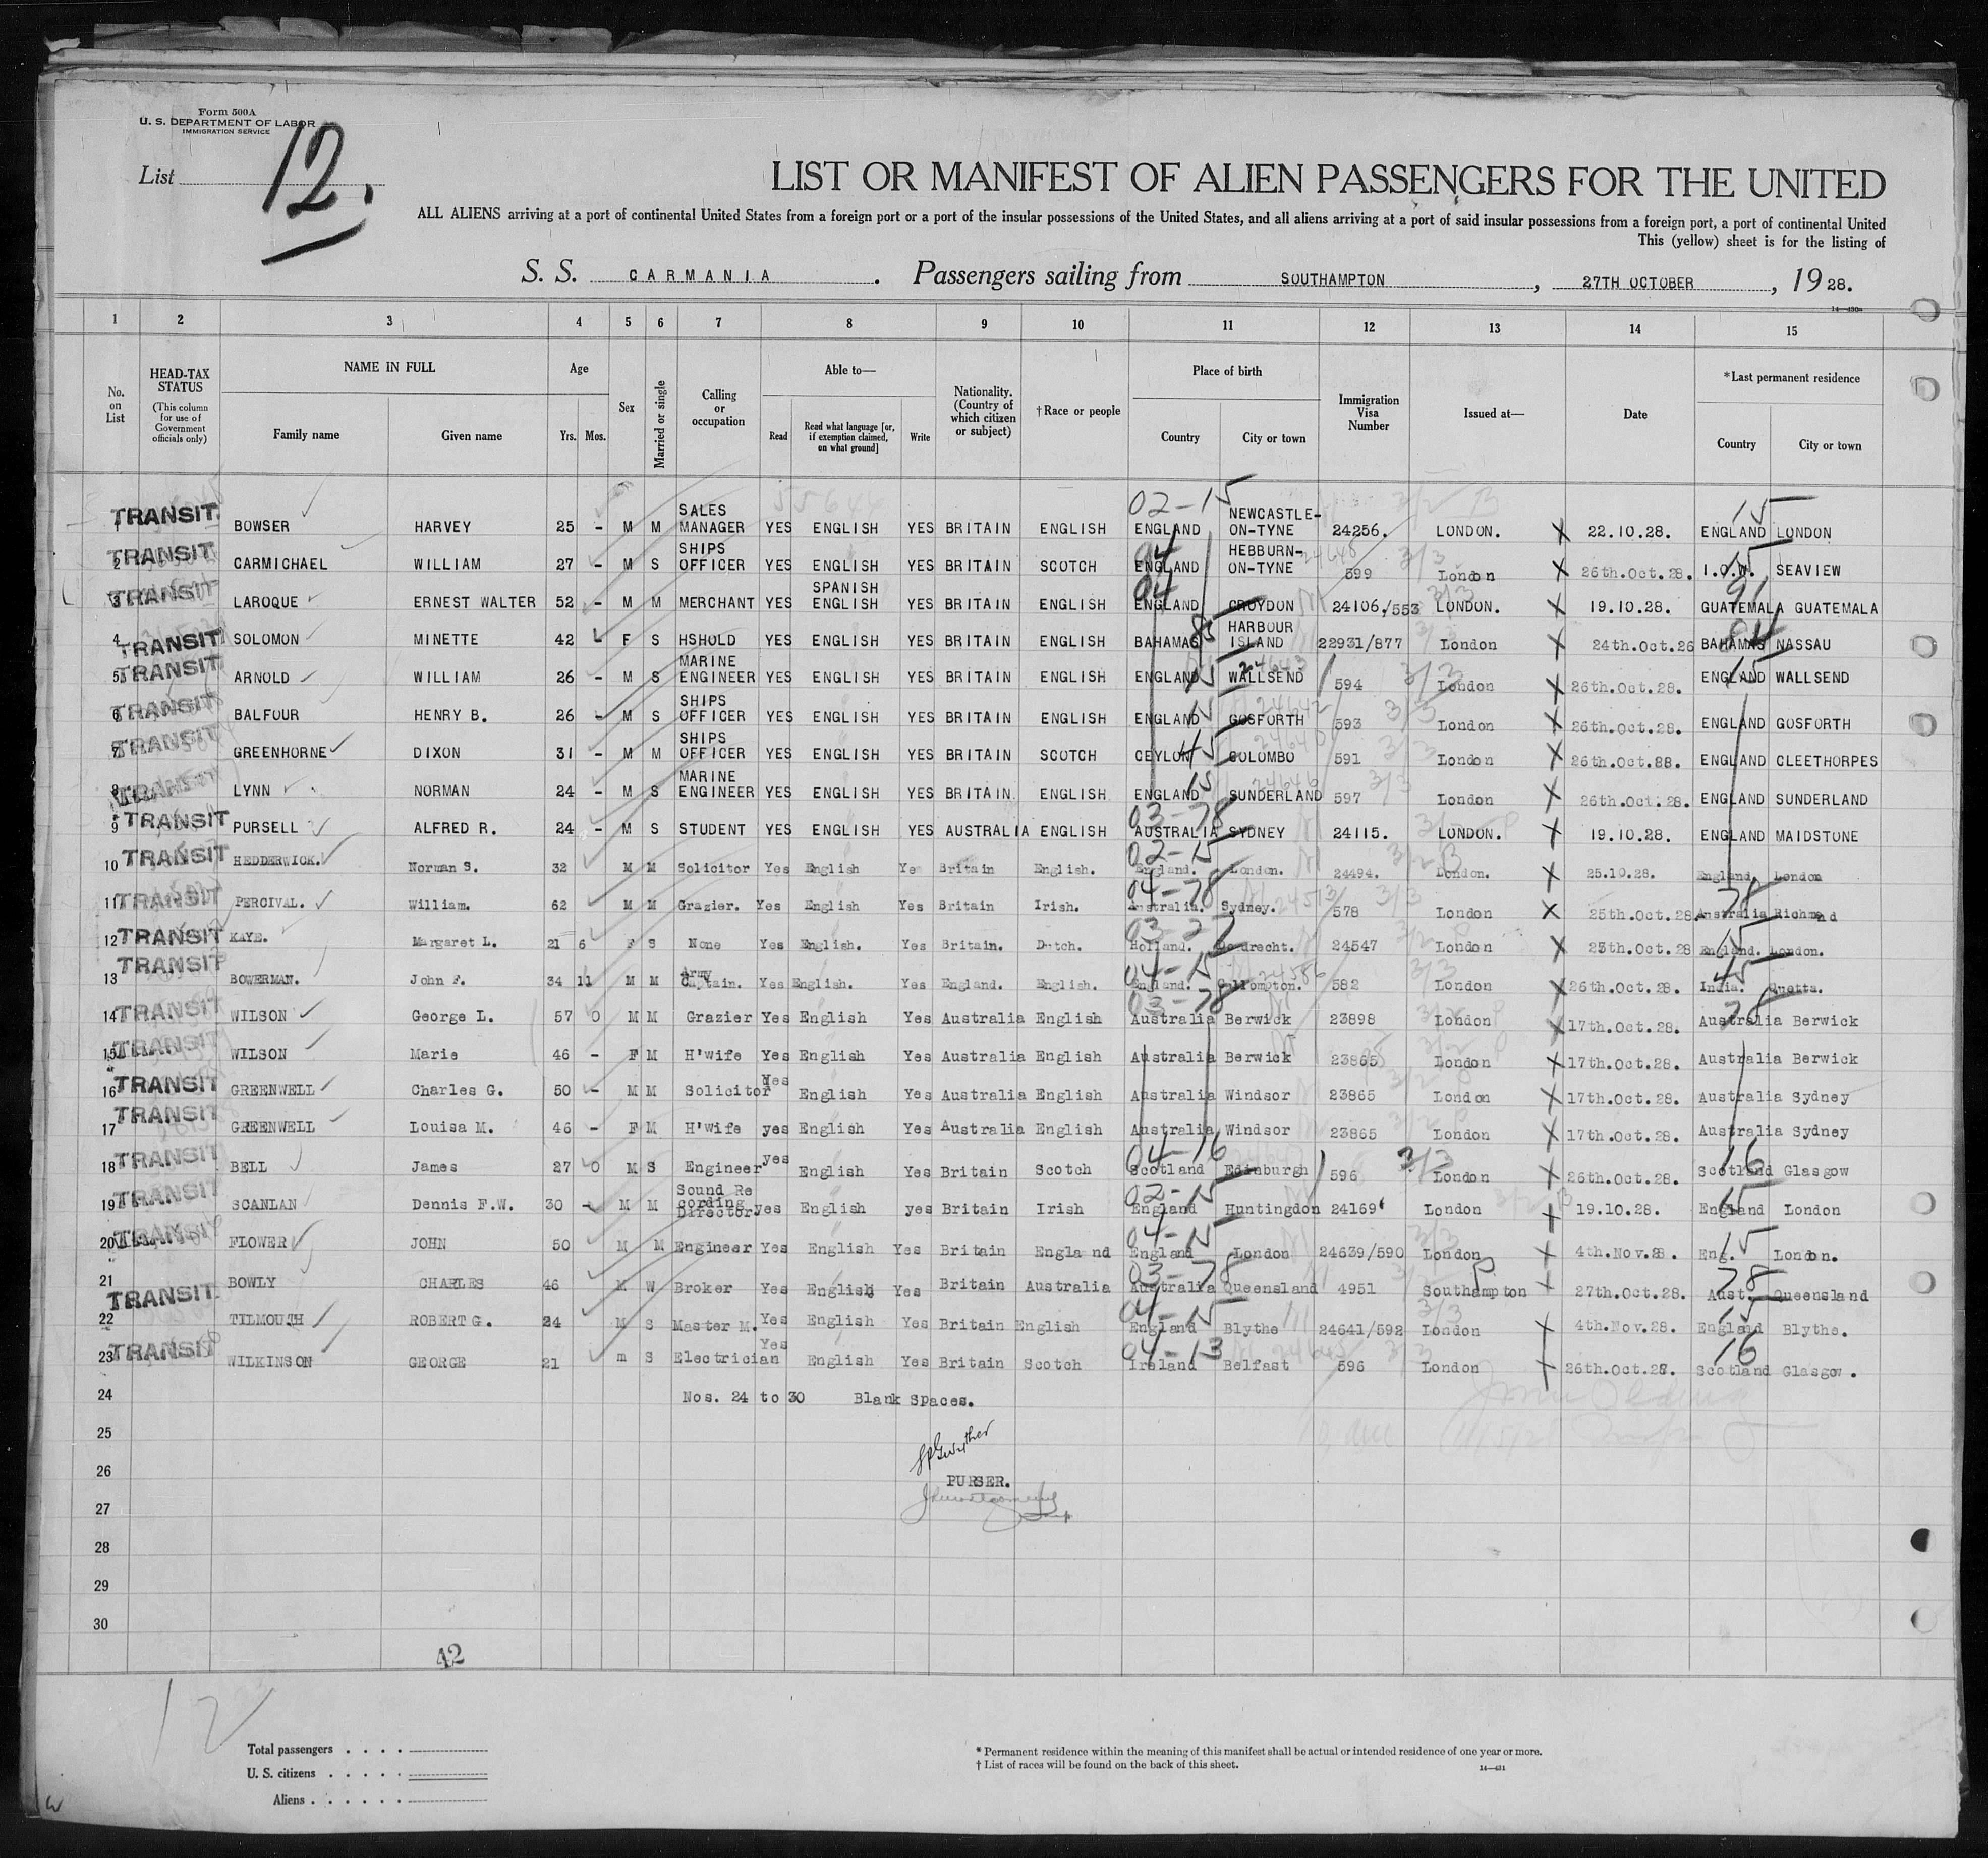 Form 500A
U. S. DEPARTMENT OF LABOR
IMMIGRATION SERVICE
List 12.
LIST OR MANIFEST OF ALIEN PASSENGERS FOR THE UNITED
ALL ALIENS arriving at a port of continental United States from a foreign port or a port of the insular possessions of the United States, and all aliens arriving at a port of said insular possessions from a foreign port, a port of continental United
This (yellow) sheet is for the listing of
S. S. CARMANIA. Passengers sailing from SOUTHAMPTON, 27TH OCTOBER, 19 28.
1 2 3 4 5 6 7 8 9 10 11 12 13 14 15
No. on List
HEAD-TAX STATUS (This column for use of Government officials only)
NAME IN FULL Family name Given name
Age Yrs. Mos.
Sex
Married or single
Calling or occupation
Able to— Read Read what language [or, if exemption claimed, on what ground] Write
Nationality. (Country of which citizen or subject)
†Race or people
Place of birth Country City or town
Immigration Visa Number
Issued at—
Date
*Last permanent residence Country City or town
02-15 15
1 TRANSIT BOWSER HARVEY 25 - M M SALES MANAGER YES ENGLISH YES BRITAIN ENGLISH ENGLAND NEWCASTLE-ON-TYNE 24256. LONDON. X 22.10.28. ENGLAND LONDON
2 TRANSIT CARMICHAEL WILLIAM 27 - M S SHIPS OFFICER YES ENGLISH YES BRITAIN SCOTCH ENGLAND HEBBURN-ON-TYNE 599 London X 26th.Oct.28. I.O.W. SEAVIEW
3 TRANSIT LAROQUE ERNEST WALTER 52 - M M MERCHANT YES SPANISH ENGLISH YES BRITAIN ENGLISH ENGLAND CROYDON 24106./553 LONDON. X 19.10.28. GUATEMALA GUATEMALA
4 TRANSIT SOLOMON MINETTE 42 - F S HSHOLD YES ENGLISH YES BRITAIN ENGLISH BAHAMAS HARBOUR ISLAND 22931/877 London X 24th.Oct.26 BAHAMAS NASSAU
5 TRANSIT ARNOLD WILLIAM 26 - M S MARINE ENGINEER YES ENGLISH YES BRITAIN ENGLISH ENGLAND WALLSEND 594 London X 26th.Oct.28. ENGLAND WALLSEND
6 TRANSIT BALFOUR HENRY B. 26 - M S SHIPS OFFICER YES ENGLISH YES BRITAIN ENGLISH ENGLAND GOSFORTH 593 London X 26th.Oct.28. ENGLAND GOSFORTH
7 TRANSIT GREENHORNE DIXON 31 - M M SHIPS OFFICER YES ENGLISH YES BRITAIN SCOTCH CEYLON COLOMBO 591 London X 26th.Oct.88. ENGLAND CLEETHORPES
8 TRANSIT LYNN NORMAN 24 - M S MARINE ENGINEER YES ENGLISH YES BRITAIN ENGLISH ENGLAND SUNDERLAND 597 London X 26th.Oct.28. ENGLAND SUNDERLAND
03-78
9 TRANSIT PURSELL ALFRED R. 24 - M S STUDENT YES ENGLISH YES AUSTRALIA ENGLISH AUSTRALIA SYDNEY 24115. LONDON. X 19.10.28. ENGLAND MAIDSTONE
02-15
10 TRANSIT HEDDERWICK. Norman S. 32 M M Solicitor Yes English Yes Britain English. England. London. 24494. London. X 25.10.28. England. London
04-78 78
11 TRANSIT PERCIVAL. William. 62 M M Grazier. Yes English Yes Britain Irish. Australia. Sydney. 578 London X 25th.Oct.28. Australia Richmond
03-27 15
12 TRANSIT KAYE. Margaret L. 21 6 F S None Yes English. Yes Britain. Dutch. Holland. Dordrecht. 24547 London X 25th.Oct.28 England. London.
04-15 45
13 TRANSIT BOWERMAN. John F. 34 11 M M Army Captain. Yes English. Yes England. English. England. Cullompton. 582 London X 26th.Oct.28. India. Quetta.
03-78 78
14 TRANSIT WILSON George L. 57 0 M M Grazier Yes English Yes Australia English Australia Berwick 23898 London X 17th.Oct.28. Australia Berwick
15 TRANSIT WILSON Marie 46 - F M H'wife Yes English Yes Australia English Australia Berwick 23865 London X 17th.Oct.28. Australia Berwick
16 TRANSIT GREENWELL Charles G. 50 - M M Solicitor Yes English Yes Australia English Australia Windsor 23865 London X 17th.Oct.28. Australia Sydney
17 TRANSIT GREENWELL Louisa M. 46 - F M H'wife yes English Yes Australia English Australia Windsor 23865 London X 17th.Oct.28. Australia Sydney
04-16 16
18 TRANSIT BELL James 27 0 M S Engineer yes English Yes Britain Scotch Scotland Edinburgh 596 3/3 London X 26th.Oct.28. Scotland Glasgow
02-15 15
19 TRANSIT SCANLAN Dennis F.W. 30 - M M Sound Recording Director. yes English yes Britain Irish England Huntingdon 24169 London X 19.10.28. England London
04-15 15
20 TRANSIT FLOWER JOHN 50 M M Engineer Yes English Yes Britain England England London 24639/590 London X 4th.Nov.28. Eng. London.
03-78 78
21 TRANSIT BOWLY CHARLES 46 M W Broker Yes English Yes Britain Australia Australia Queensland 4951 Southampton X 27th.Oct.28. Aust. Queensland
04-15 15
22 TILMOUTH ROBERT G. 24 M S Master M. Yes English Yes Britain English England Blythe 24641/592 London X 4th.Nov.28. England Blythe.
04-13 16
23 TRANSIT WILKINSON GEORGE 21 m S Electrician Yes English Yes Britain Scotch Ireland Belfast 596 London X 26th.Oct.28. Scotland Glasgow.
24 Nos. 24 to 30 Blank Spaces.
25
26
PURSER.
27
28
29
30
42
12
Total passengers . . . .
U. S. citizens . . . . .
Aliens . . . . . .
* Permanent residence within the meaning of this manifest shall be actual or intended residence of one year or more.
† List of races will be found on the back of this sheet.
14—431